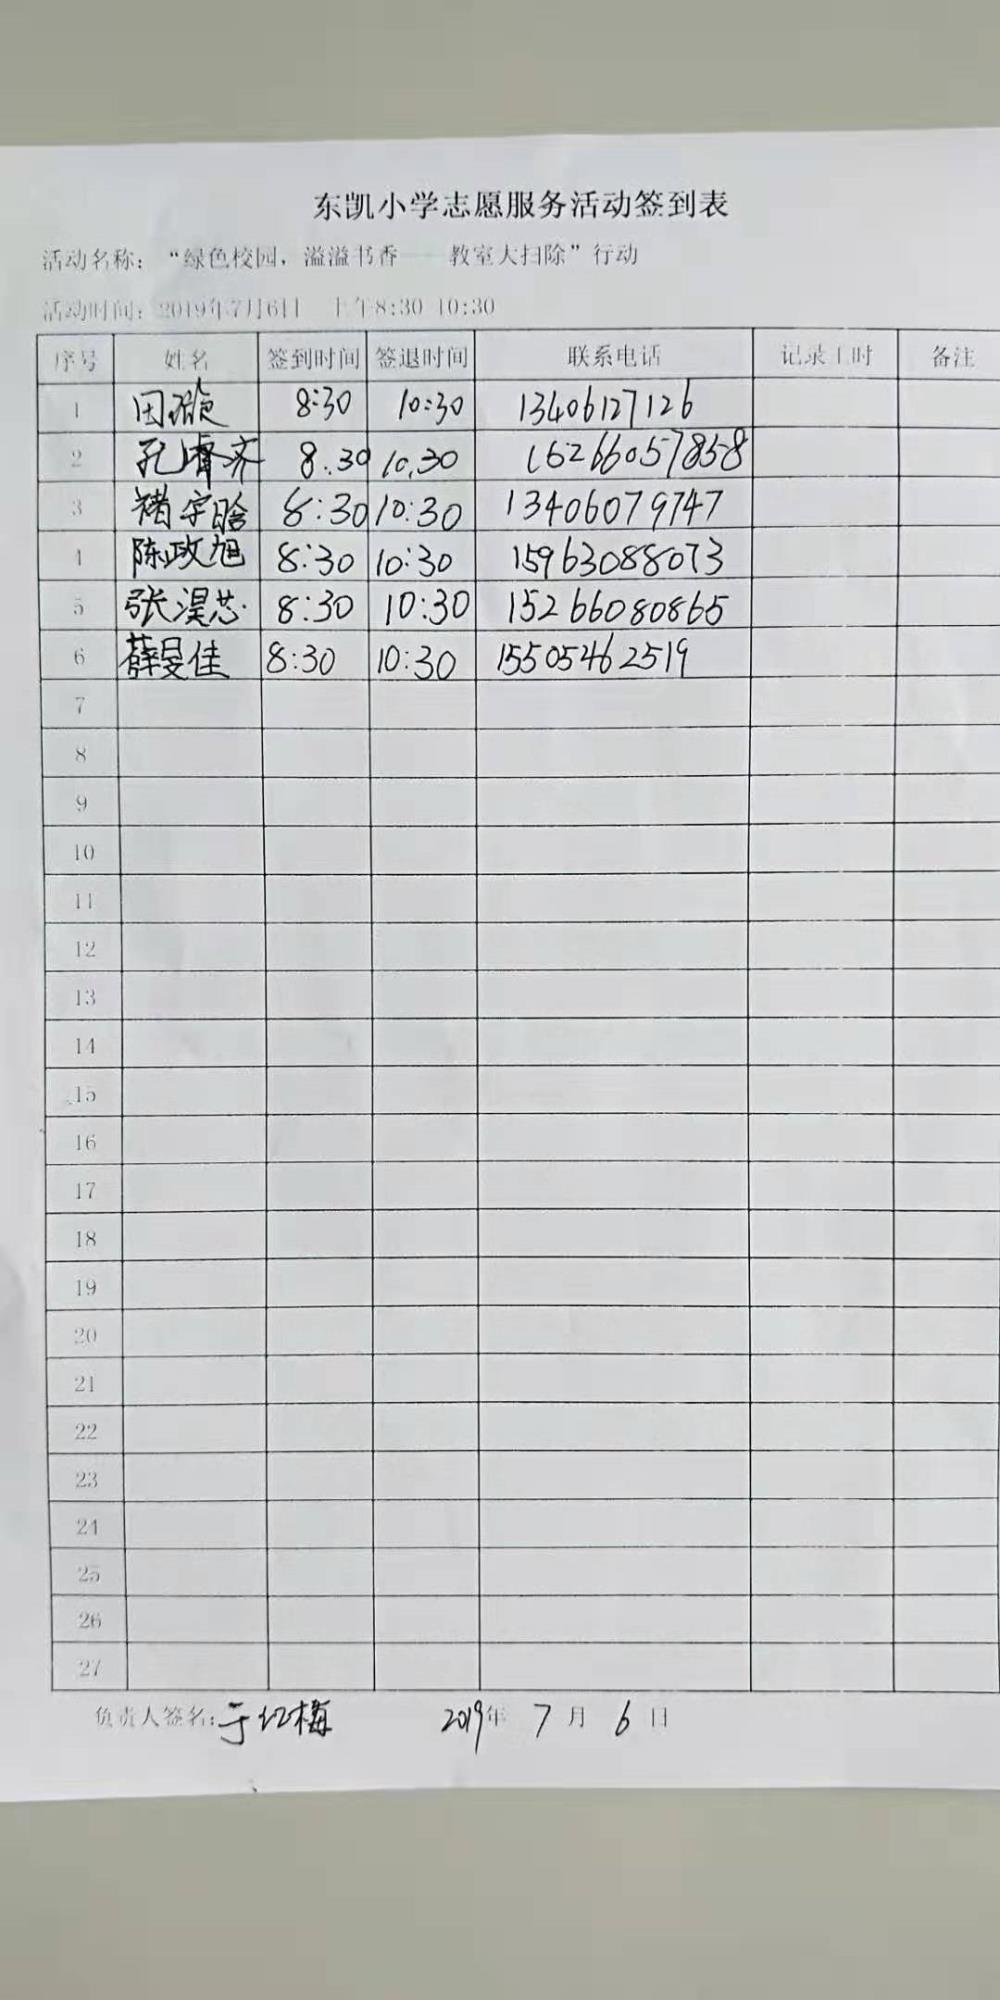 东凯小学志愿服务活动签到表
活动名称：“绿色校园，溢溢书香——教室大扫除”行动
活动时间：2019年7月6日 上午8:30-10:30
序号 姓名 签到时间 签退时间 联系电话 记录工时 备注
1 田璇 8:30 10:30 13406127126
2 孔睿齐 8:30 10:30 15266057858
3 褚宇晗 8:30 10:30 13406079747
4 陈政旭 8:30 10:30 15963088073
5 张淏芯 8:30 10:30 15266080865
6 薛旻佳 8:30 10:30 15505462519
7
8
9
10
11
12
13
14
15
16
17
18
19
20
21
22
23
24
25
26
27
负责人签名：于红梅 2019年 7 月 6 日